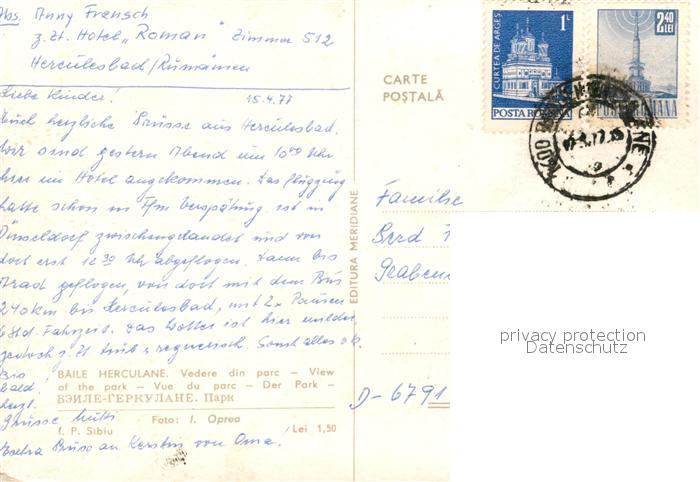 Abs. Anny Fransch
z. Zt. Hotel „Roman" Zimmer 512
Herculesbad/Rumänien
15.4.77
Liebe Kinder!
Euch herzliche Grüsse aus Herculesbad.
Wir sind gestern Abend um 10 Uhr
hier im Hotel angekommen. Das Flugzeug
hatte schon in Verspätung ist in
Düsseldorf zwischengelandet und von
dort erst 12 30 Uhr abgeflogen. Dann bis
Arad geflogen, von dort mit dem Bus
240 km bis Herculesbad, mit 2x Pausen
6 Std. Fahrzeit. Das Wetter ist hier milder
jedoch z. Zt trüb & regnerisch. Sonst alles o.k.
Bis
bald!
herzl.
Grüsse Mutti
Extra Grüsse an Kerstin von Oma!
BAILE HERCULANE. Vedere din parc — View
of the park — Vue du parc — Der Park —
БЭИЛЕ-ГЕРКУЛАНЕ. Парк
Foto: I. Oprea
I. P. Sibiu
Lei 1,50
EDITURA MERIDIANE
CARTE
POȘTALĂ
1L
CURTEA DE ARGEȘ
POSTA ROMANA
2,40
LEI
POSTA ROMANA
Familie
Gerd
Graben
D-6791
privacy protection
Datenschutz